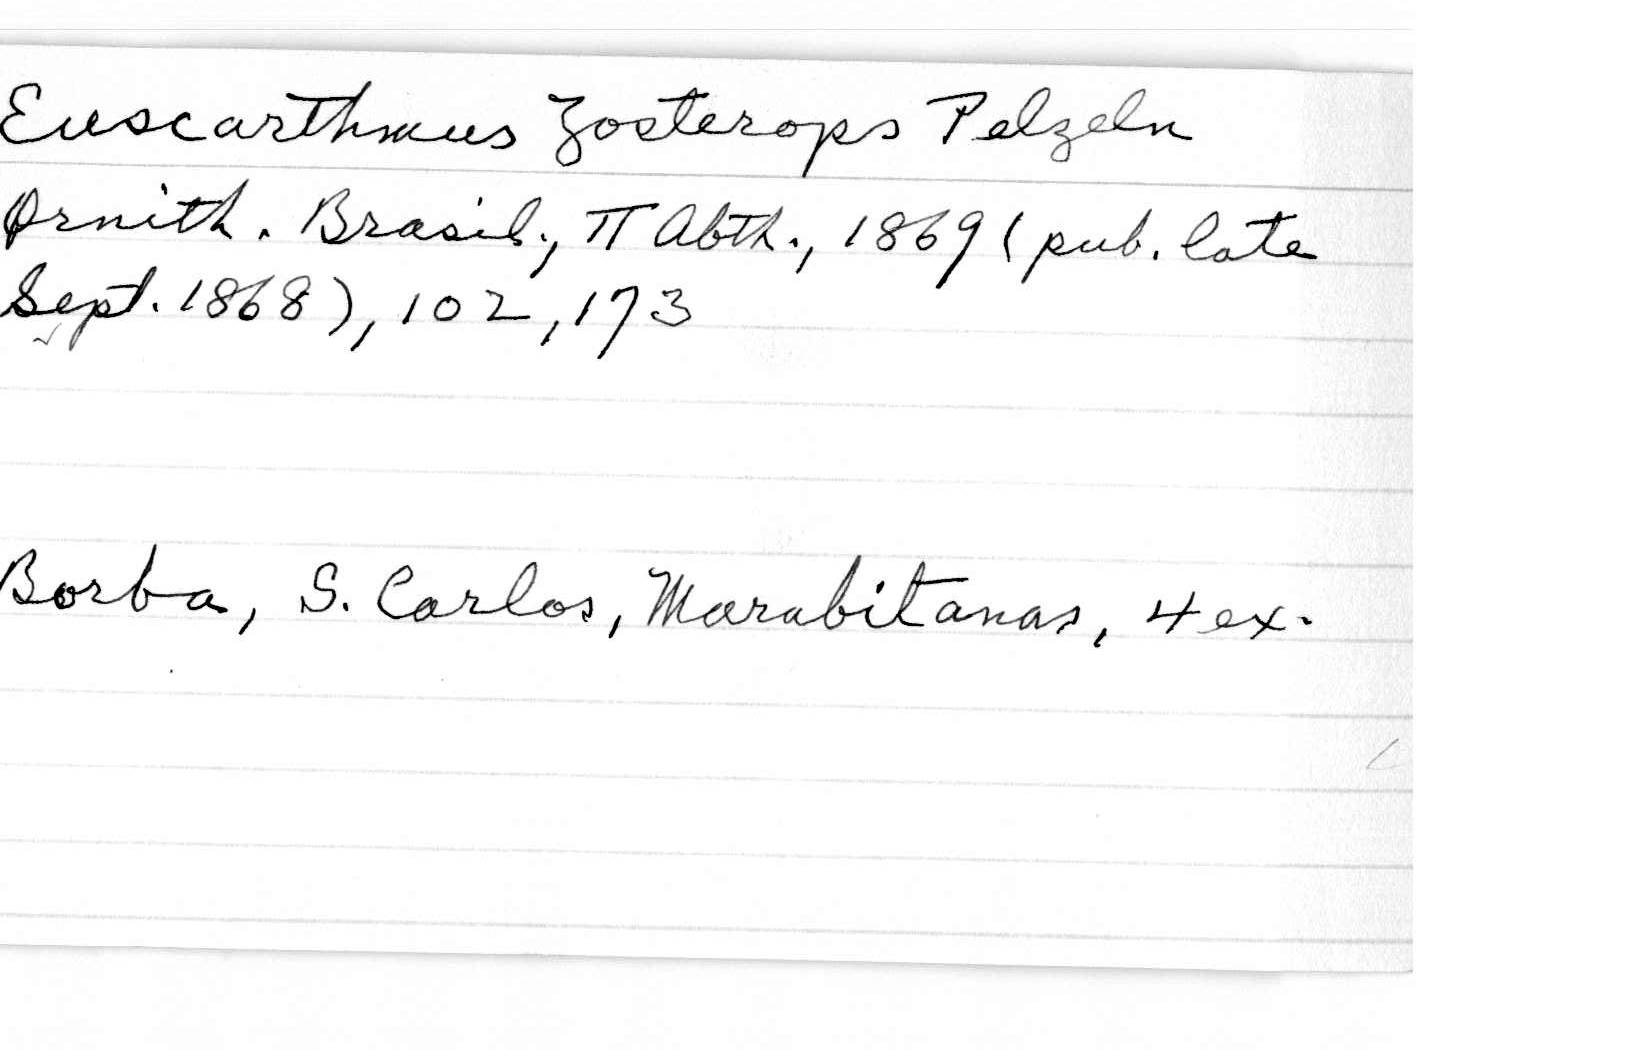 Euscarthmus Zosterops Pelzeln
Ornith. Brasil., II Abth., 1869 (pub. late
Sept. 1868), 102, 173
Borba, S. Carlos, Marabitanas, 4 ex.